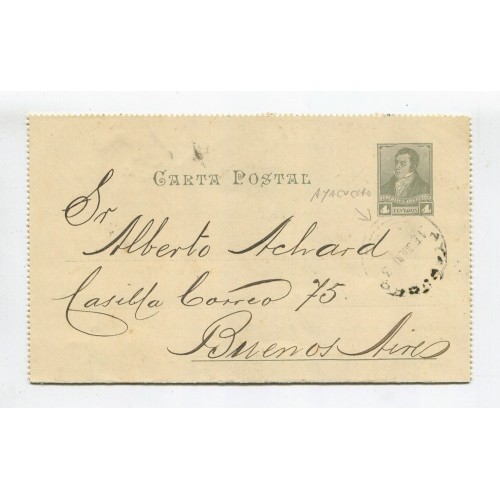 CARTA POSTAL
REPUBLICA ARGENTINA
4 CENTAVOS 4
AYACUCHO
Sr
Alberto Achard
Casilla Correo 75.
Buenos Aires